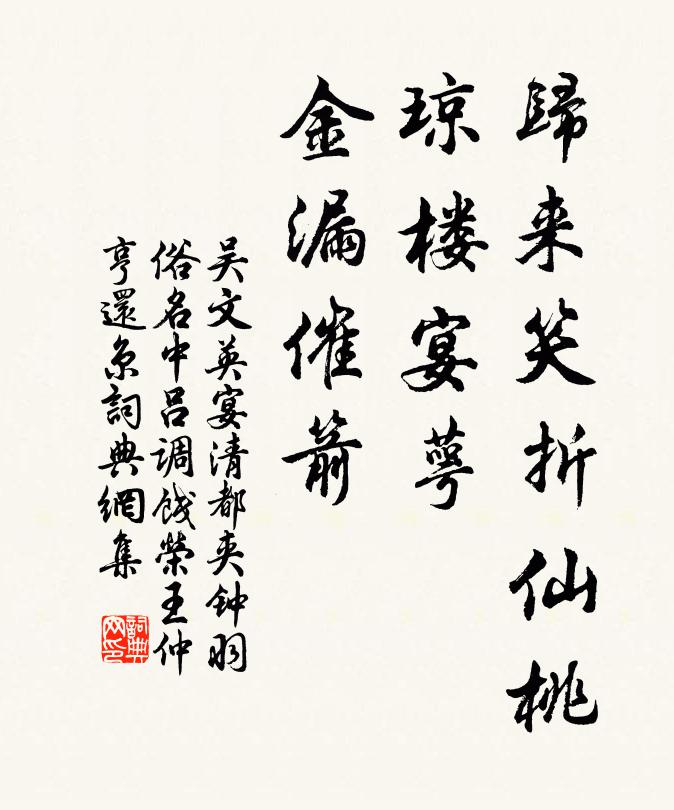 歸来笑折仙桃
琼楼宴萼
金漏催箭
吴文英宴清都夹钟羽
俗名中吕调饯榮王仲
亨還京詞典網集
詞典网印